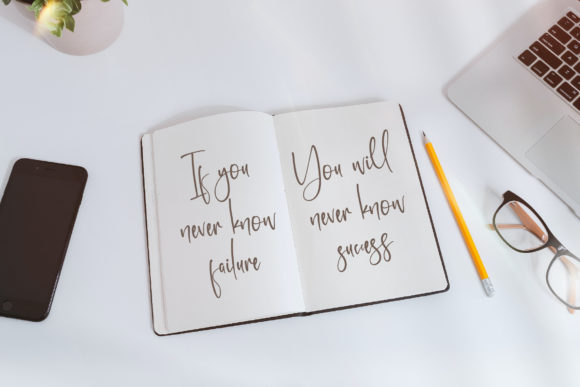 If you
never know
failure
You will
never know
success